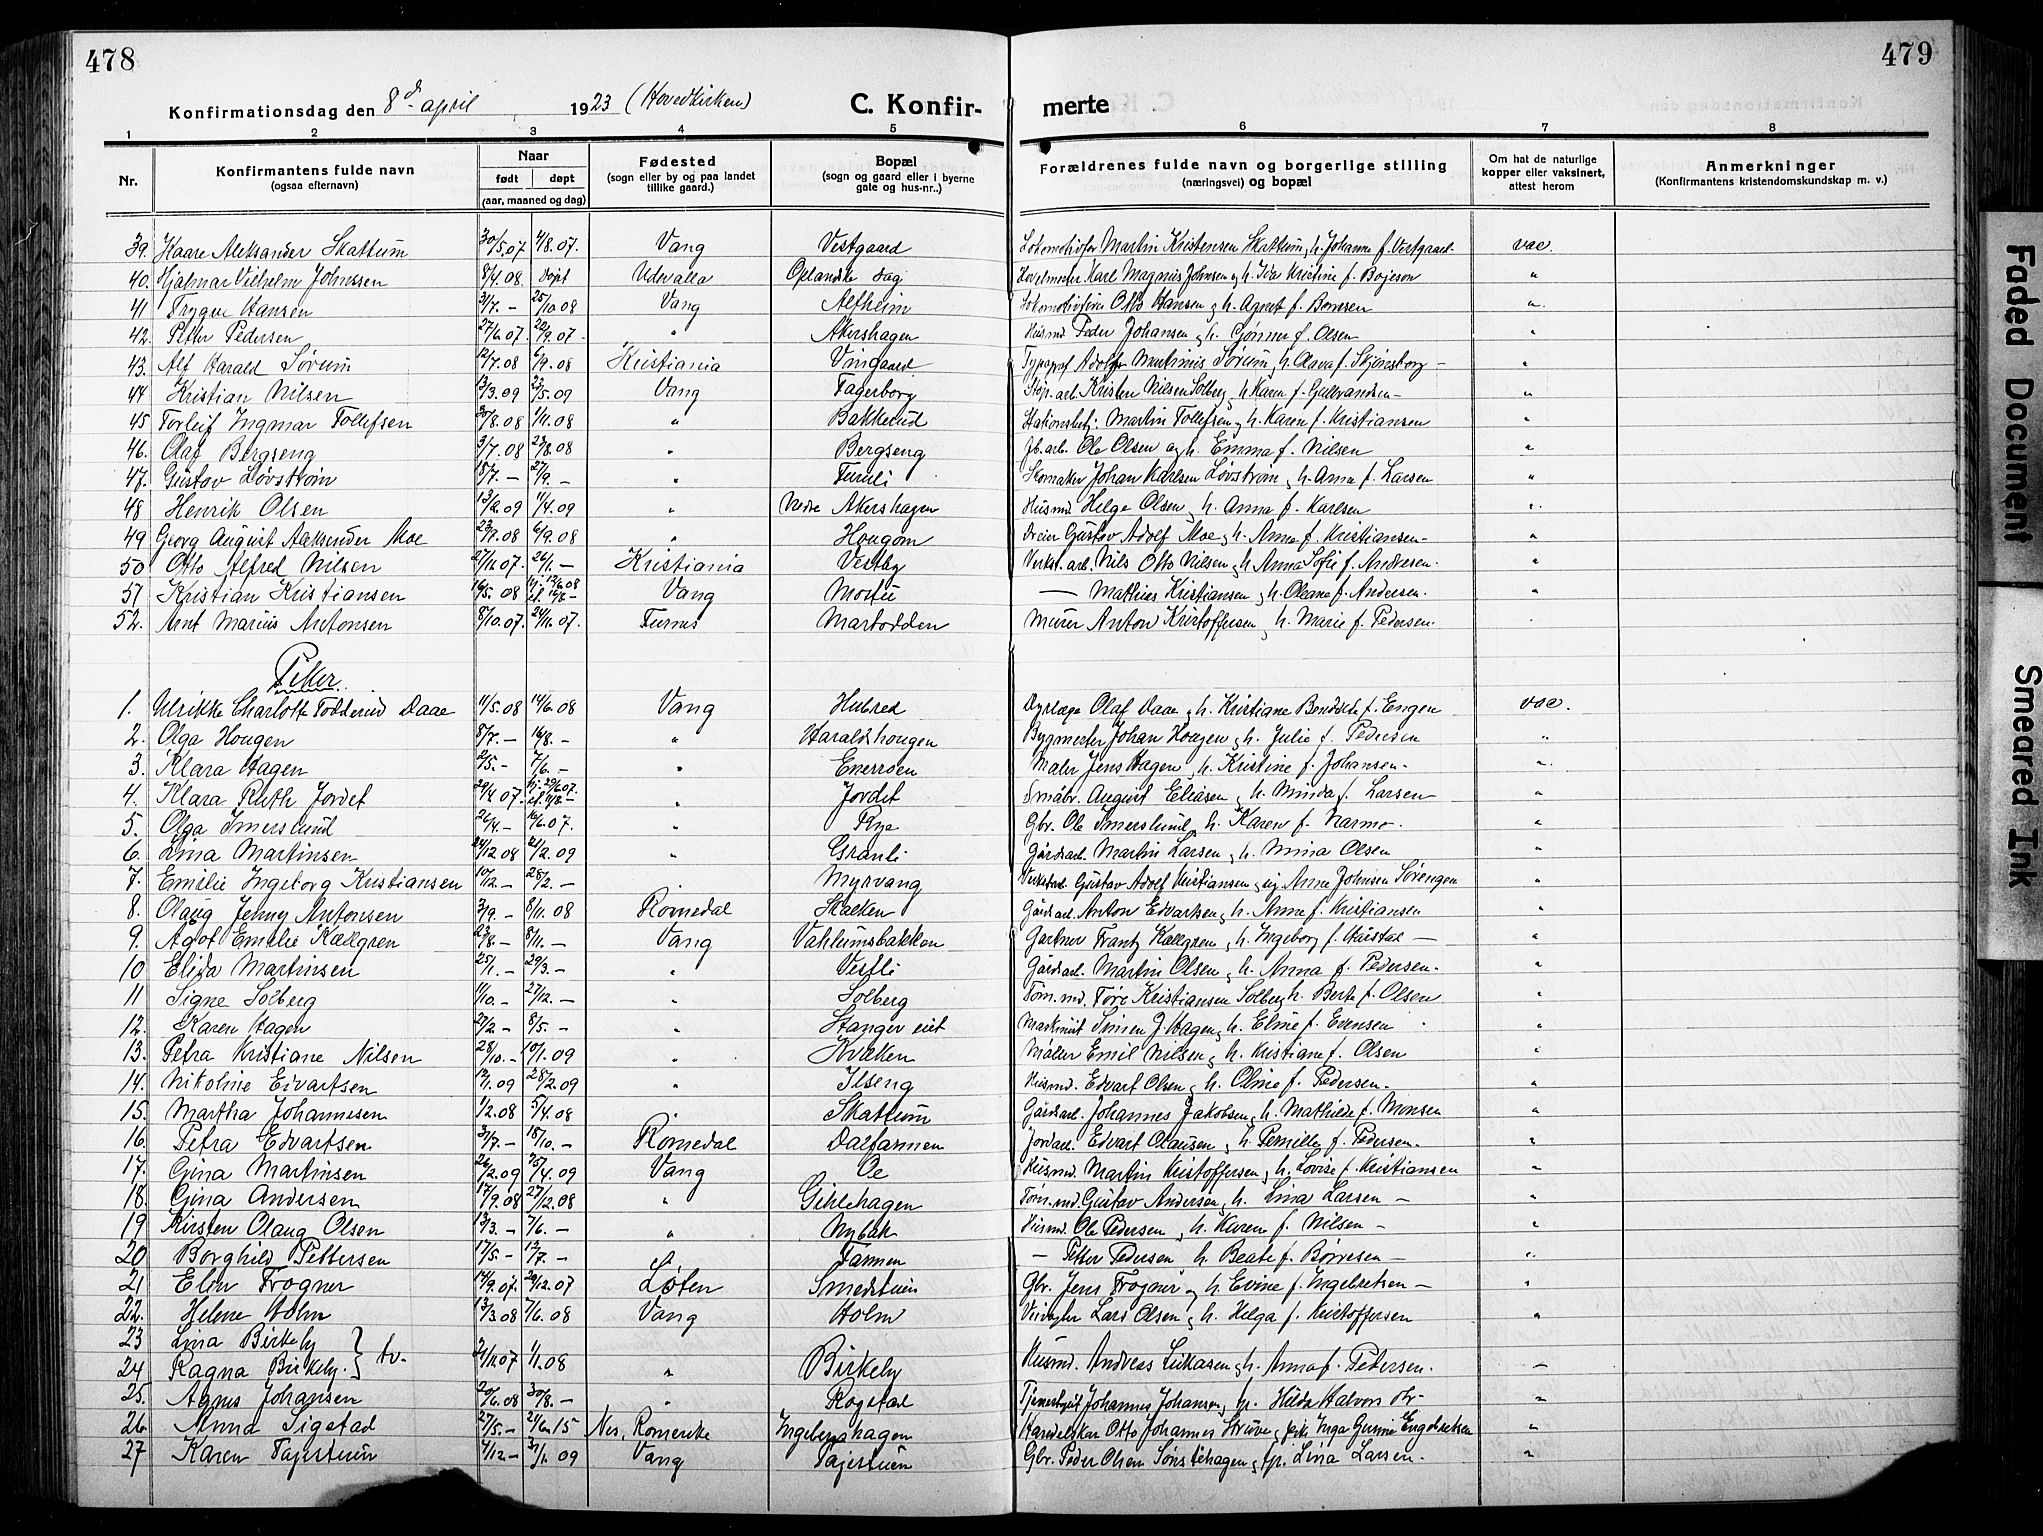 478
479
Konfirmationsdag den 8de april 1923 (Hovedkirken)
C. Konfir-
merte
1 2 3 4 5 6 7 8
Nr.
Konfirmantens fulde navn
(ogsaa efternavn)
Naar
født døpt
(aar, maaned og dag)
Fødested
(sogn eller by og paa landet
tillike gaard.)
Bopæl
(sogn og gaard eller i byerne
gate og hus-nr..)
Forældrenes fulde navn og borgerlige stilling
(næringsvei) og bopæl
Om hat de naturlige
kopper eller vaksinert,
attest herom
Anmerkninger
(Konfirmantens kristendomskundskap m. v.)
39. Kaare Aleksander Skattum 30/5.07 4/8.07. Vang Vestgaard Lokomotivfør Martin Kristensen Skattum, h. Johanne f. Vestgaard vac.
40. Hjalmar Vilhelm Johnssen 8/4.08. Døpt Udevalla Oplandske dag Hovelmester Karl Magnus Johnsen og h. Ida Kristine f. Bojeson "
41 Trygve Hansen 3/7. – 25/10 08 Vang Alfheim Lokomotivfører Otto Hansen og h. Agnet f. Bonesen "
42. Petter Pedersen 27/6.07. 22/9.07. " Akershagen Husmd. Peder Johansen og h. Gjønner f. Olsen "
43. Alf Harald Sørum 12/7.08 6/9.08 Kristiania Vingaard Typograf Adolf Martinius Sørum, h. Olava f. Skjønsborg – "
44 Kristian Nilsen 13/3.09 23/5.09 Vang Fagerborg Støp. arb. Kristen Nilsen Solberg, h. Karen f. Gulbrandsen – "
45 Torleif Ingmar Tollefsen 30/8.08 1/11.08 " Bakkerud Stationsbetj: Martin Tollefsen og h. Karen f. Kristiansen "
46. Olaf Bergseng 3/7.08 23/8.08 " Bergseng Jb. arb. Ole Olsen og h. Emma f. Nilsen "
47. Gustav Løvstrøm 15/7. – 27/9. – " Furuli Skomaker Johan Karlsen Løvstrøm, h. Anna f. Larsen "
48 Henrik Olsen 13/2.09 11/4.09 " Nedre Akershagen Husmd. Helge Olsen, h. Anna f. Karlsen "
49 Georg August Aleksander Moe 23/7.08 6/9.08 " Hougom Dreier Gustav Adolf Moe, h. Anna f. Kristiansen – "
50 Otto Alfred Nilsen 27/11.07. 26/1. – Kristiania Vestby Verkst. arb. Nils Otto Nilsen, h. Anna Sofie f. Andresen. "
51 Kristian Kristiansen 16/5.08 hj. 12/6.08 st. 16/8 – Vang Mortu — Mathius Kristiansen, h. Oleane f. Andersen. "
52. Arnt Marius Antonsen 8/10.07. 24/11.07. Furnes Martodden Murer Anton Kristoffersen, h. Marie f. Pedersen.
Piker.
1. Ulrikke Charlotte Todderud Daae 11/5.08 14/6.08 Vang Hubred Dyrlæge Olaf Daae, h. Kristiane Benedikte f. Engen vac.
2. Olga Hougen 5/7. – 16/8. – " Haraldshougen Bygmester Johan Hougen, h. Julie f. Pedersen "
3. Klara Hagen 2/5. – 7/6. – " Enerroen Maler Jens Hagen, h. Kristine f. Johansen – "
4. Klara Ruth Jordet 29/4 07. hj. 29/6 07. st. 11/8 – " Jordet Småbr. August Eliasen, h. Minda f. Larsen "
5. Olga Imerslund 26/4. – 16/6.07. " Rye Gbr. Ole Imerslund, h. Karen f. Narmo. "
6. Lina Martinsen 24/12 08 21/2.09 " Granli Gårdsarb. Martin Larsen, h. Mina Olsen "
7. Emilie Ingeborg Kristiansen 10/12 – 28/2. – Myrvang Verkstad. Gustav Adolf Kristiansen, sig Anna Johnsen Sørengen "
8. Olaug Jenny Antonsen 3/9. – 8/11. 08 Romedal Skalken Gårdsarb. Anton Edvartsen, h. Anne f. Kristiansen "
9. Agot Emelie Kællgren 23/8. – 8/11. – Vang Vahlumsbakken Gartner Frantz Kællgren, h. Ingeborg f. Harstad — "
10 Elida Martinsen 25/1. – 29/3. – " Vestli Gårdsarb. Martin Olsen, h. Anna f. Pedersen. "
11 Signe Solberg 11/10. – 27/12. – " Solberg Tøm. md. Tore Kristiansen Solberg h. Berte f. Olsen "
12. Karen Hagen 27/2 – 8/5. – " Stanger eiet Maskinist Simen J. Hagen, h. Eline f. Evensen "
13. Petra Kristiane Nilsen 28/10. – 10/1.09 " Kvæken Møller Emil Nilsen, h. Kristiane f. Olsen "
14. Nikoline Eivartsen 12/1.09 28/2.09 " Ilseng Husmd. Edvart Olsen, h. Oline f. Pedersen. "
15. Martha Johannesen 1/2.08 5/4.08 " Skattum Gårdsarb. Johannes Jakobsen, h. Mathilde f. Monsen "
16. Petra Edvartsen 31/7. – 18/10. – Romedal Dalfarmen Jordarb. Edvart Olausen, h. Pernille f. Pedersen. "
17. Gina Martinsen 26/2.09 25/4.09 Vang Oe Husmd. Martin Kristoffersen, h. Lovise f. Kristiansen "
18. Gina Andersen 17/9.08 27/12.08 " Gihlehagen Tøm. md. Gustav Andersen, h. Lina Larsen – "
19 Kirsten Olaug Olsen 13/3. – 7/6. – " Nybak Husmd. Ole Pedersen, h. Karen f. Nilsen – "
20 Borghild Pettersen 17/5. – 12/7. – " Farmen – Petter Pedersen h. Beate f. Børresen – "
21 Elen Frogner 14/9.07. 29/12.07 Løten Smedstuen Gbr. Jens Frogner og h. Evine f. Ingebretsen – "
22. Helene Holm 13/3 08 7/6.08 Vang Holm Veivogter Lars Olsen, h. Helga f. Kristoffersen "
23 Lina Birkely } tv.
24 Ragna Birkely. 21/11.07 1/1.08 " Birkely Husmd. Andreas Lukasen, h. Anna f. Pedersen. –
25. Agnes Johansen 20/6.08 30/8. – " Rogstad Tjenestegut Johannes Johansen, gp. Hilda Halvors dtr – "
26. Anna Sigstad 27/5. – 29/6.15 Nes, Romerike Ingeberghagen Handelskar Otto Johannes Struve, pike Inga Gunine Engebretsen "
27 Karen Fajestuen 4/12 – 31/1. 09 Vang Fajestuen Gbr. Peder Olsen Sønstehagen, gp. Lina Larsen. "
Faded Document
Smeared Ink